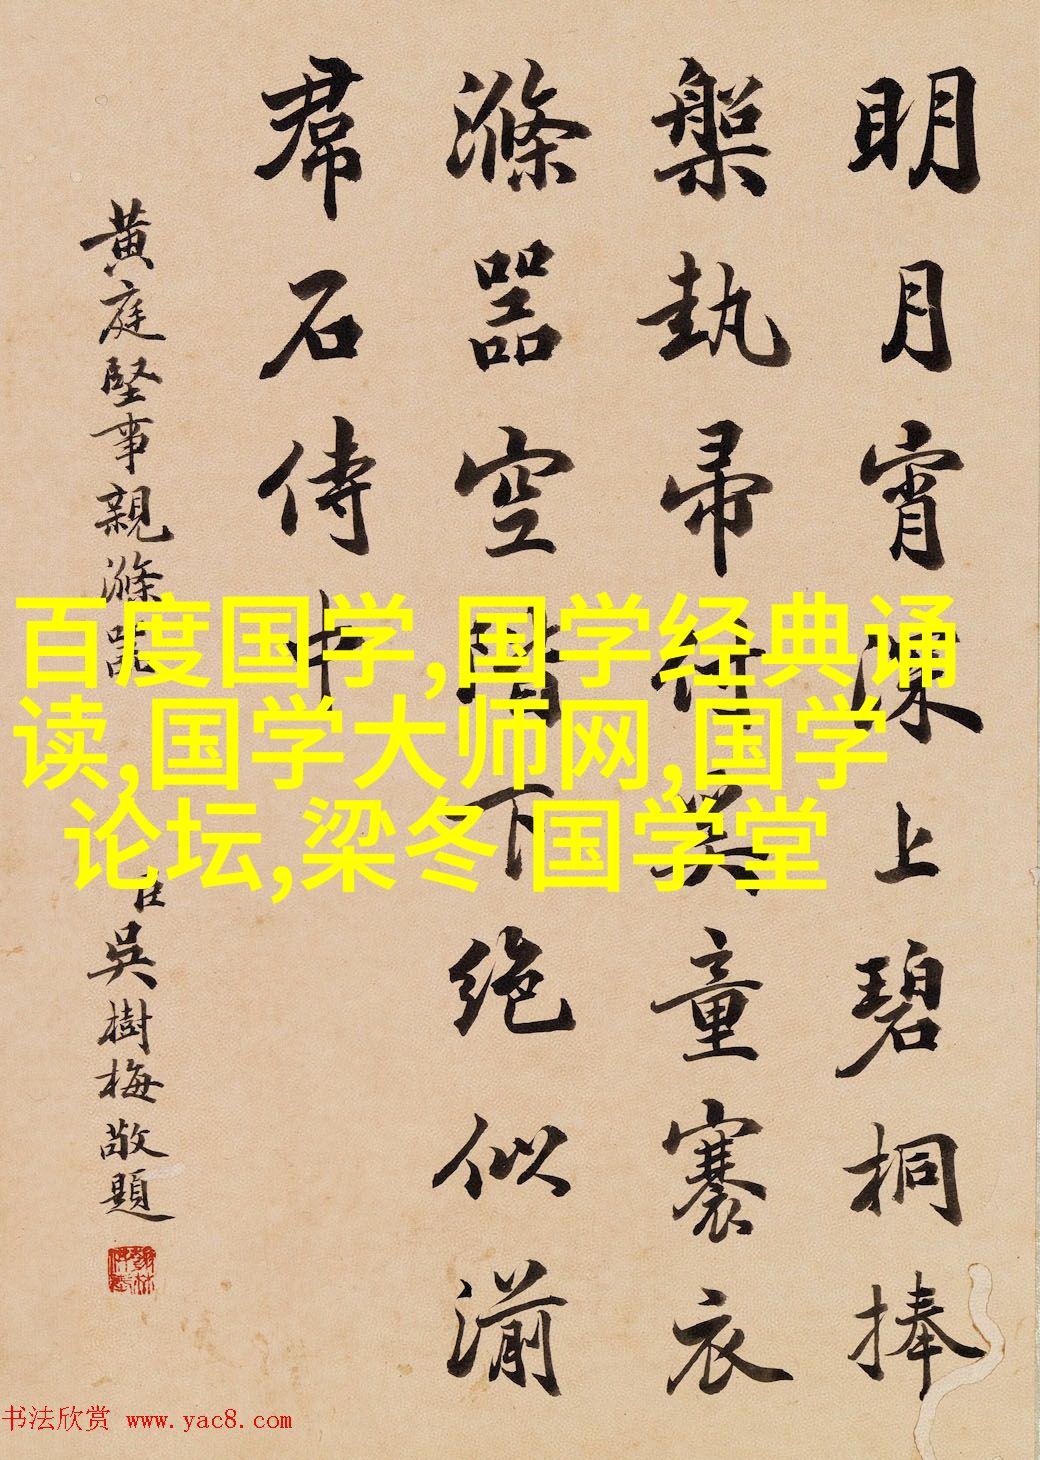 明月宵深上碧桐捧
槃執帚付奚童褰衣
滌器空階下絶似湔
帬石侍中
黄庭堅事親滌器
吳樹梅敬題
百度国学,国学经典诵
读,国学大师网,国学
论坛,梁冬 国学堂
书法欣赏 www.yac8.com